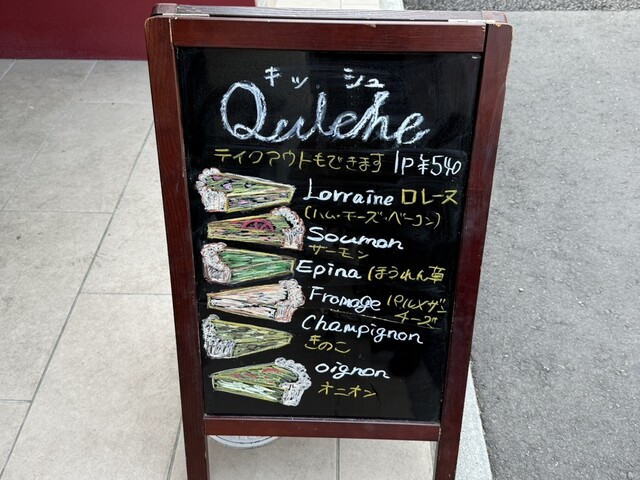 キッシュ
Quiche
テイクアウトもできます 1P ¥540
Lorraine ロレーヌ
(ハム・チーズ・ベーコン)
Soumon
サーモン
Epina ほうれん草
Fromage パルメザン
チーズ
Champignon
きのこ
oignon
オニオン